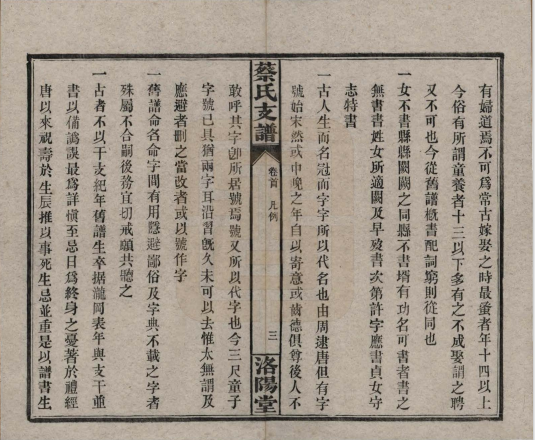 有婦道焉不可爲常古嫁娶之時最蚤者年十四以上
今俗有所謂童養者十三以下多有之不成娶謂之聘
又不可也今從舊譜概書配詞窮則從同也
一女不書縣縣闕闕之同縣不書壻有功名可書者書之
無書書姓女所適闕及早歿書次第許字應書貞女守
志特書
一古人生而名冠而字字所以代名也由周逮唐但有字
號始宋然或中晚之年自以寄意或齒德俱尊後人不
蔡氏支譜
卷首 凡例
三
洛陽堂
敢呼其字卽所居號焉號又所以代字也今三尺童子
字號已具猶兩字耳沿習旣久未可以去惟太無謂及
應避者刪之當改者或以號作字
一舊譜命名命字間有用隱避鄙俗及字典不載之字者
殊屬不合嗣後務宜切戒願共聽之
一古者不以干支紀年舊譜生卒据瀧岡表年與支干重
書以備譌誤最爲詳愼至忌日爲終身之憂著於禮經
唐以來祝壽於生辰推以事死生忌並重是以譜書生